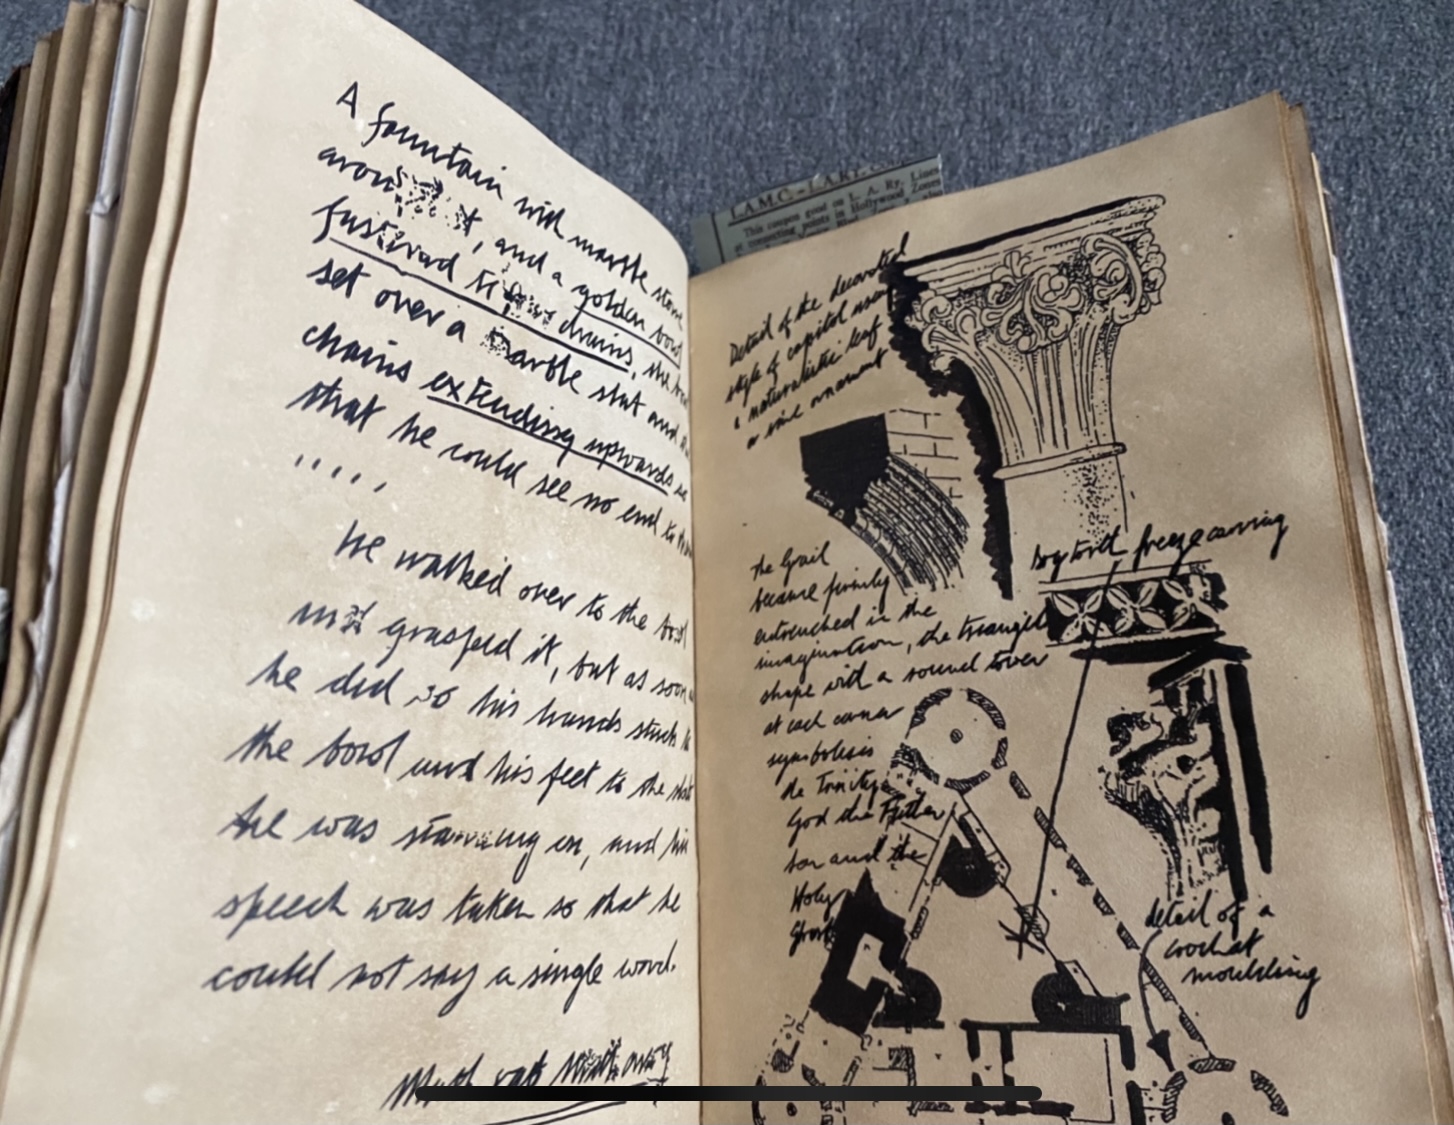 A fountain with marble stone
around it, and a golden bowl
fastened to four chains, the bowl
set over a marble slab and
chains extending upwards so
that he could see no end to them
....
He walked over to the bowl
and grasped it, but as soon
he did so his hands stuck to
the bowl and his feet to the slab
he was standing on, and his
speech was taken so that he
could not say a single word.
L.A.M.C.-L.A.RY.
This coupon good on L. A. Ry. Lines
at connecting points in Hollywood Zones
Detail of the decorated
style of capitol
a naturalistic leaf
or vine ornament
the Grail
became firmly
entrenched in the
imagination, the triangle
shape with a round tower
at each corner
symbolesis
the Trinity
God the Father
Son and the
Holy
Ghost
dogtooth freeze carving
detail of a
crochat
moulding